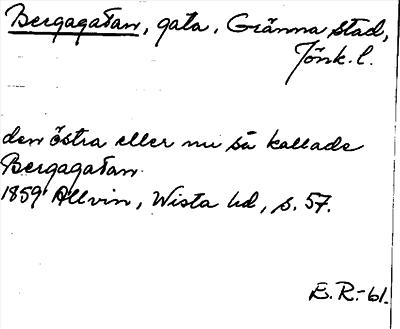 Bergagatan, gata, Gränna stad,
Jönk. l.
den östra eller nu så kallade
Bergagatan
1859 Allvin, Wista hd, s. 57.
E. R. -61.